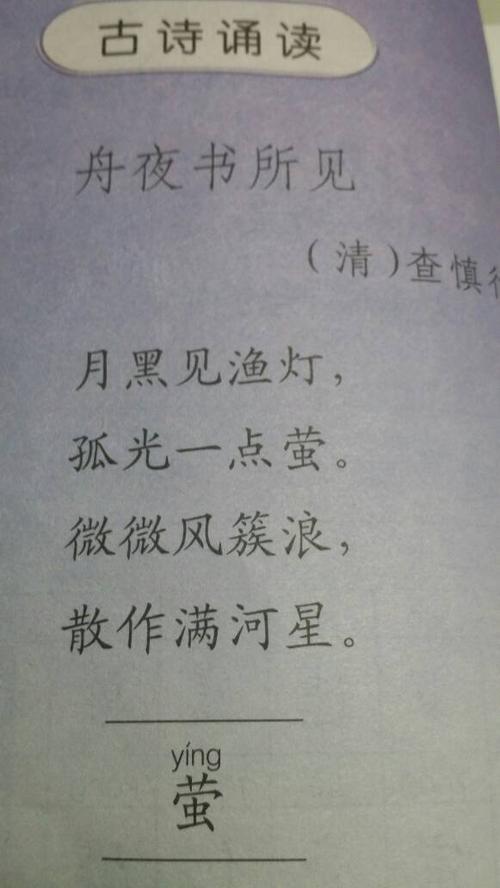 古诗诵读
舟夜书所见
（清）查慎行
月黑见渔灯，
孤光一点萤。
微微风簇浪，
散作满河星。
yíng
萤